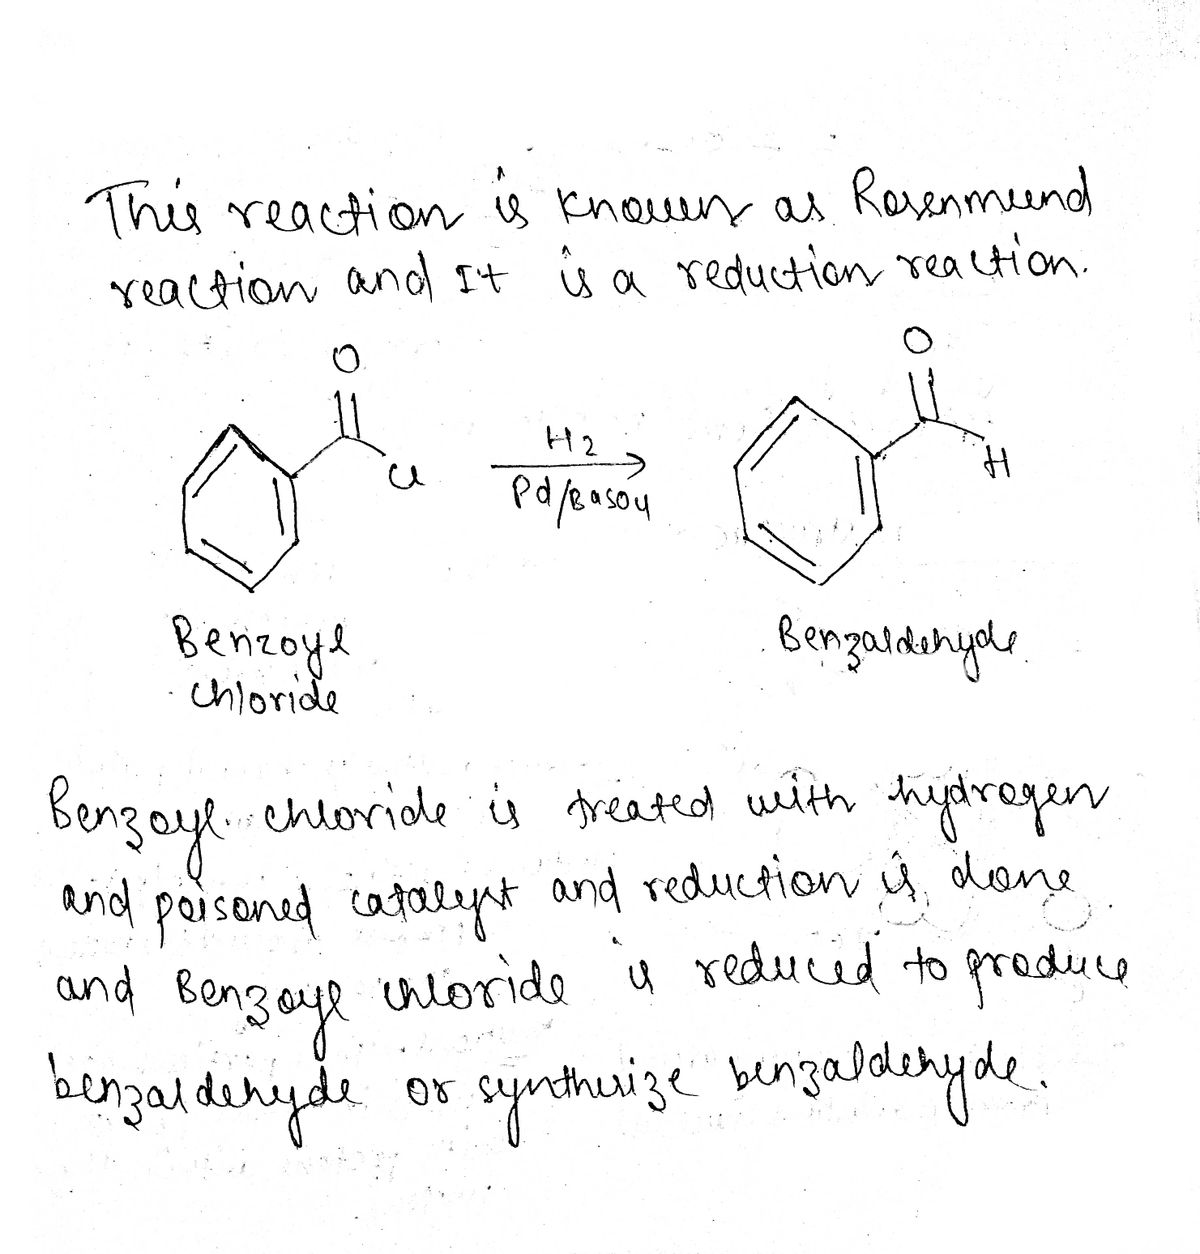 This reaction is known as Rosenmund
reaction and It is a reduction reaction.
O
O
Cl
H2
Pd/BaSO4
H
Benzoyl
chloride
Benzaldehyde
Benzoyl chloride is treated with hydrogen
and poisoned catalyst and reduction is done
and Benzoyl chloride is reduced to produce
benzaldehyde or synthesize benzaldehyde.